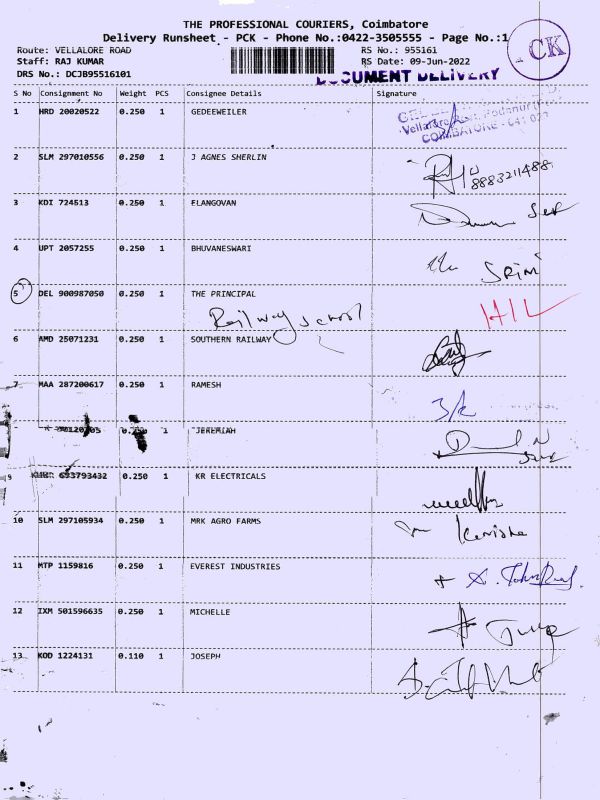 THE PROFESSIONAL COURIERS, Coimbatore
Delivery Runsheet - PCK - Phone No.:0422-3505555 - Page No.:1
CK
Route: VELLALORE ROAD RS No.: 955161
Staff: RAJ KUMAR RS Date: 09-Jun-2022
DRS No.: DCJB95516101 DOCUMENT DELIVERY
S No Consignment No Weight PCS Consignee Details Signature
1 HRD 20020522 0.250 1 GEDEEWEILER
COIMBATORE
2 SLM 297010556 0.250 1 J AGNES SHERLIN
8883211488
3 KDI 724513 0.250 1 ELANGOVAN
4 UPT 2057255 0.250 1 BHUVANESWARI
5 DEL 900987050 0.250 1 THE PRINCIPAL
Railway School
6 AMD 25071231 0.250 1 SOUTHERN RAILWAY
7 MAA 287200617 0.250 1 RAMESH
0.250 1 JEREMIAH
9 693793432 0.250 1 KR ELECTRICALS
10 SLM 297105934 0.250 1 MRK AGRO FARMS
11 MTP 1159816 0.250 1 EVEREST INDUSTRIES
12 IXM 501596635 0.250 1 MICHELLE
13 KOD 1224131 0.110 1 JOSEPH